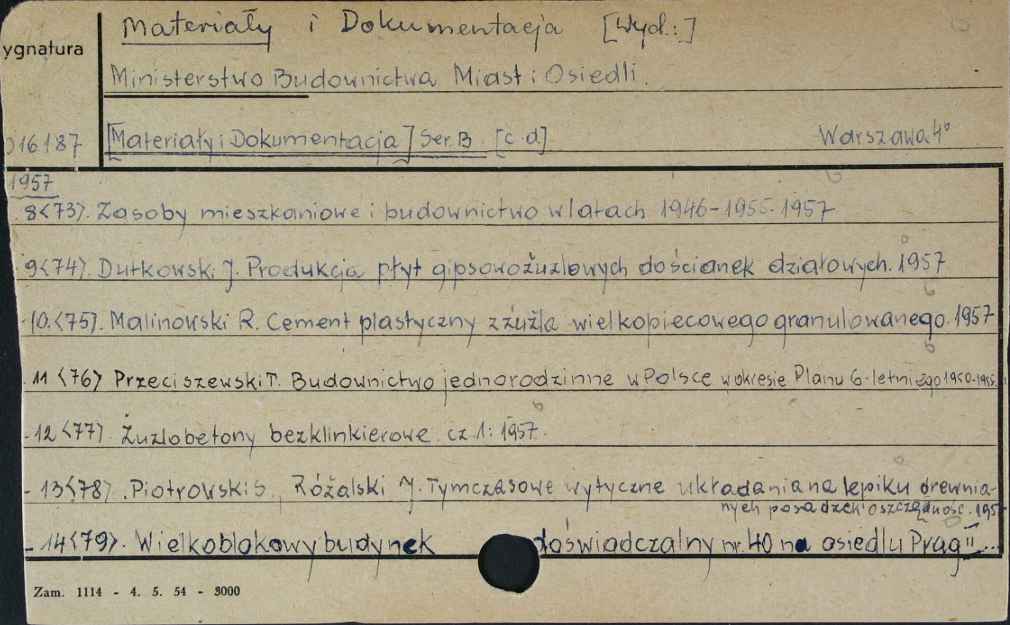 Materiały i Dokumentacja [Wyd.:]
ygnatura
Ministerstwo Budownictwa Miast i Osiedli.
016187 [Materiały i Dokumentacja] Ser. B. [c.d] Warszawa 4°
1957
8<73>. Zasoby mieszkaniowe i budownictwo w latach 1946-1955. 1957
9<74>. Dutkowski J. Produkcja płyt gipsowożużlowych do ścianek działowych. 1957
10.<75>. Malinowski R. Cement plastyczny z żużla wielkopiecowego granulowanego. 1957
11 <76> Przeciszewski T. Budownictwo jednorodzinne w Polsce w okresie Planu 6-letniego 1950-1955.
- 12 <77>. Żużlobetony bezklinkierowe. cz. 1: 1957.
- 13<78>. Piotrowski S., Różalski J. Tymczasowe wytyczne układania na lepiku drewnia-
nych posadzek oszczędnośc. 195
- 14<79>. Wielkoblokowy budynek doświadczalny nr. 40 na osiedlu Prag II...
Zam. 1114 - 4. 5. 54 - 3000